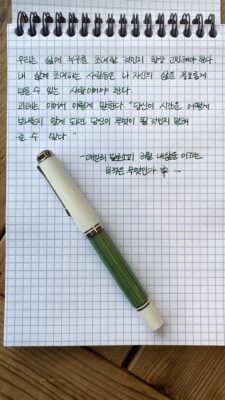 우리는 삶에 누구를 초대할 것인지 항상 고민해야 한다.
내 삶에 초대하는 사람들은 나 자신의 삶을 풍요롭게
만들 수 있는 사람이어야 한다.
괴테는 이에서 이렇게 말한다. "당신이 시간을 어떻게
보내는지 알게 되면, 당신이 무엇이 될 것인지 말해
줄 수 있다"
내 삶을 이끄는
목적은 무엇인가 中 →